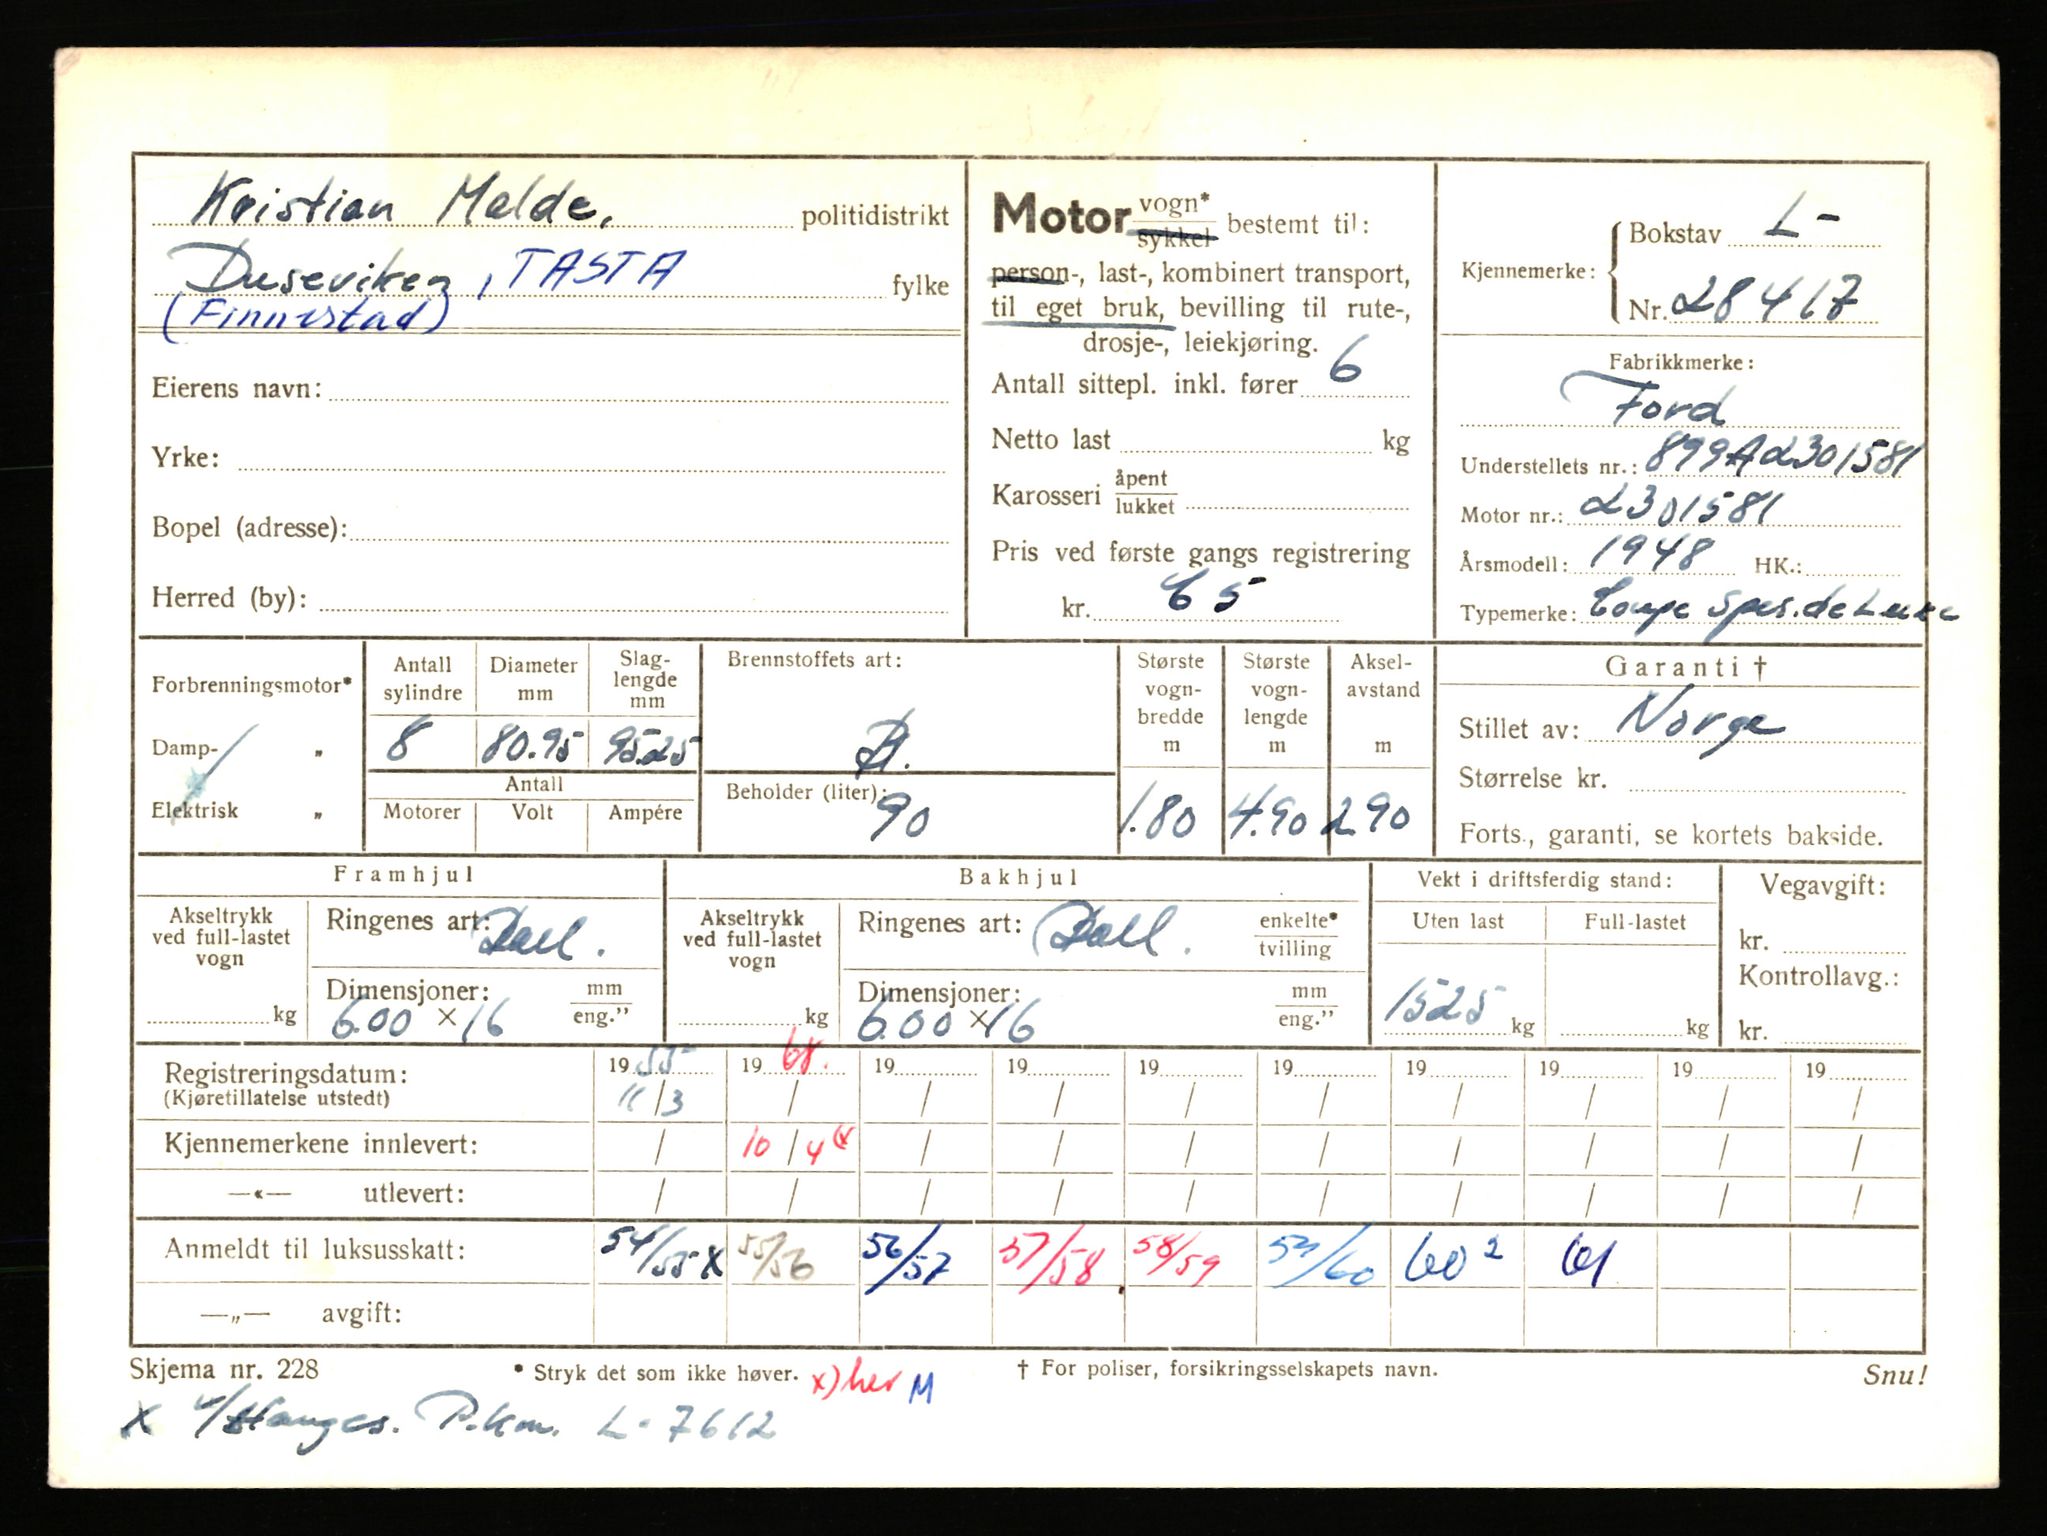 Kristian Melde, politidistrikt
Duseviken, TASTA fylke
(Finnestad)
Eierens navn:
Yrke:
Bopel (adresse):
Herred (by):
Motor vogn* sykkel bestemt til:
person-, last-, kombinert transport,
til eget bruk, bevilling til rute-,
drosje-, leiekjøring.
Antall sittepl. inkl. fører 6
Netto last kg
Karosseri åpent lukket
Pris ved første gangs registrering
kr. 65
Kjennemerke: Bokstav L-
Nr. 28417
Fabrikkmerke:
Ford
Understellets nr.: 899A2301581
Motor nr.: 2301581
Årsmodell: 1948 HK.:
Typemerke: Coupe Spes. de Luxe
Forbrenningsmotor*
Damp- „
Elektrisk „
Antall sylindre
8
Diameter mm
80.95
Slag-lengde mm
95.25
Antall
Motorer Volt Ampére
Brennstoffets art:
B.
Beholder (liter):
90
Største vogn-bredde m
1.80
Største vogn-lengde m
4.90
Aksel-avstand m
2.90
Garanti †
Stillet av: Norge
Størrelse kr.
Forts., garanti, se kortets bakside.
Framhjul
Akseltrykk ved full-lastet vogn
kg
Ringenes art: Ball.
Dimensjoner: mm eng."
6.00 x 16
Bakhjul
Akseltrykk ved full-lastet vogn
kg
Ringenes art: Ball. enkelte* tvilling
Dimensjoner: mm eng."
6.00 x 16
Vekt i driftsferdig stand:
Uten last Full-lastet
1525 kg kg
Vegavgift:
kr.
Kontrollavg.:
kr.
Registreringsdatum: 19 55 19 68. 19 19 19 19 19 19 19 19
(Kjøretillatelse utstedt) 11/3 / / / / / / / / /
Kjennemerkene innlevert: / 10/4 (x / / / / / / / /
—«— utlevert: / / / / / / / / / /
Anmeldt til luksusskatt: 54/55 X 55/56 56/57 57/58 58/59 59/60 60² 61
—„— avgift:
Skjema nr. 228 * Stryk det som ikke høver. x) her M † For poliser, forsikringsselskapets navn. Snu!
X P.km. L-7612